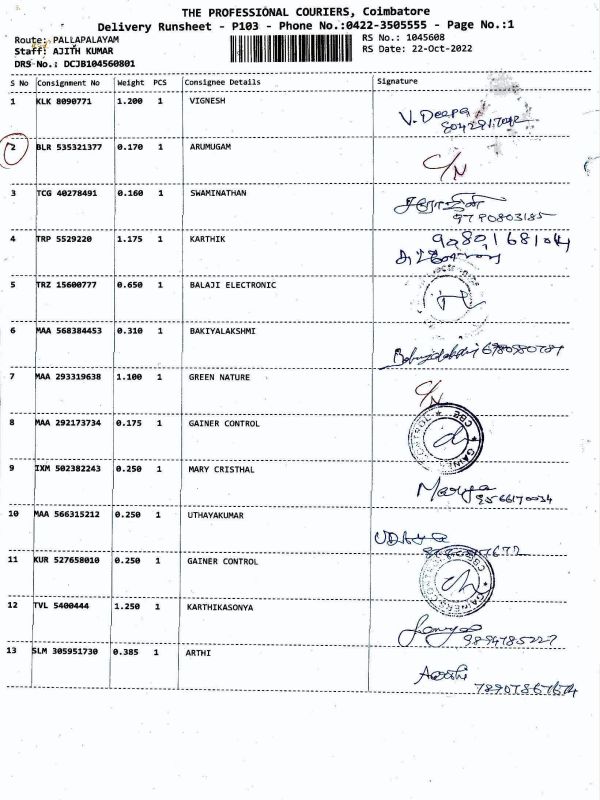 THE PROFESSIONAL COURIERS, Coimbatore
Delivery Runsheet - P103 - Phone No.:0422-3505555 - Page No.:1
Route: PALLAPALAYAM RS No.: 1045608
Staff: AJITH KUMAR RS Date: 22-Oct-2022
DRS No.: DCJB104560801
S No Consignment No Weight PCS Consignee Details Signature
1 KLK 8090771 1.200 1 VIGNESH
V. Deepa
2 BLR 535321377 0.170 1 ARUMUGAM
C/N
3 TCG 40278491 0.160 1 SWAMINATHAN
சரோஜினி
9790803185
4 TRP 5529220 1.175 1 KARTHIK 9080168104
5 TRZ 15600777 0.650 1 BALAJI ELECTRONIC
6 MAA 568384453 0.310 1 BAKIYALAKSHMI
7 MAA 293319638 1.100 1 GREEN NATURE
C/N
8 MAA 292173734 0.175 1 GAINER CONTROL
9 IXM 502382243 0.250 1 MARY CRISTHAL
9566170034
10 MAA 566315212 0.250 1 UTHAYAKUMAR
UDAYA
11 KUR 527658010 0.250 1 GAINER CONTROL
12 TVL 5400444 1.250 1 KARTHIKASONYA
9894785227
13 SLM 305951730 0.385 1 ARTHI
Aarthi